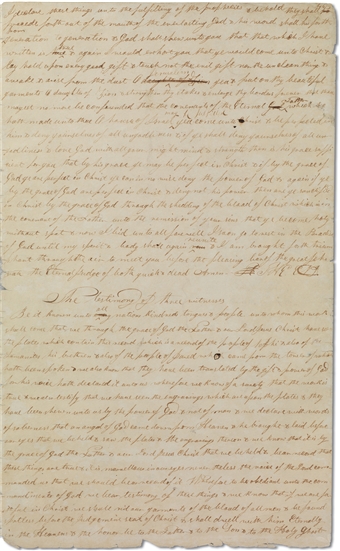 these things unto the fulfilling of the prophesies
proceed forth out of the mouth of the everlasting God & his word shall hiss forth from
generation to generation & God shall shew unto you that that which I have
written is true & again I would exhort you that ye would come unto Christ &
lay hold upon every good gift & touch not the evil gift nor the unclean thing &
awake & arise from the dust O Jerusalem yea & put on thy beautiful
garments O daughter of Zion & strengthen thy stakes & enlarge thy borders forever that thou
mayest no more be confounded that the covenants of the Eternal Father which he
hath made unto thee O house of Israel may be fulfilled yea come unto Christ & be perfected in
him & deny yourselves of all ungodliness & if ye shall deny yourselves of all un
godliness & love God with all your might mind & strength then is his grace suffi
cient for you that by his grace ye may be perfect in Christ & if by the grace of
God ye are perfect in Christ ye can in no wise deny the power of God & again if ye
by the grace of God are perfect in Christ & deny not his power then are ye sanctified
in Christ by the grace of God through the shedding of the blood of Christ which is in
the covenant of the Father unto the remission of your sins that ye become holy
without spot & now I bid unto all farewell I soon go to rest in the Paradise
of God until my spirit & body shall again reunite & I am brought forth trium
phant through the air to meet you before the pleasing bar of the great Jeho
vah the Eternal Judge of both quick & dead Amen
The Testimony of three witnesses
Be it known unto all nations kindred tongues & people unto whom this work
shall come that we through the grace of God the Father & our Lord Jesus Christ have seen
the plates which contain this record which is a record of the people of Nephi & also of the
Lamanites his brethren & also of the people of Jared which came from the tower of which
hath been spoken & we also know that they have been translated by the gift & power of God
for his voice hath declared it unto us wherefore we know of a surety that the work is
true & we also testify that we have seen the engravings which are upon the plates & they
have been shewn unto us by the power of God & not of man & we declare with words
of soberness that an angel of God came down from Heaven & he brought & laid before
our eyes that we beheld & saw the plates & the engravings thereon & we know that it is by
the grace of God the Father & our Lord Jesus Christ that we beheld & bear record that
these things are true & it is marvellous in our eyes nevertheless the voice of the Lord com
manded us that we should bear record of it wherefore to be obedient unto the com
mandments of God we bear testimony of these things & we know that if we are fa
ithful in Christ we shall rid our garments of the blood of all men & be found
spotless before the judgement seat of Christ & shall dwell with him Eternally
in the Heavens & the honor be to the Father & to the Son & to the Holy Ghost